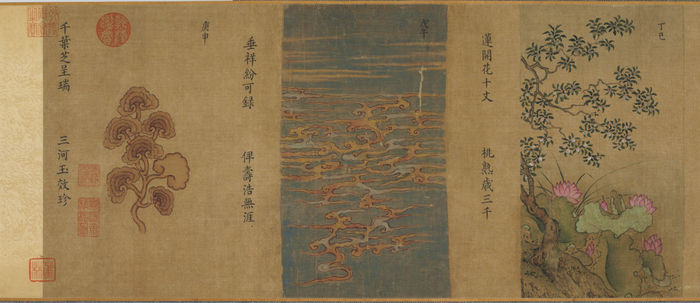 丁巳
蓮開花十丈 桃熟歲三千
戊午
垂祥紛可録 俾壽浩無涯
庚申
千葉芝呈瑞 三河玉效珍